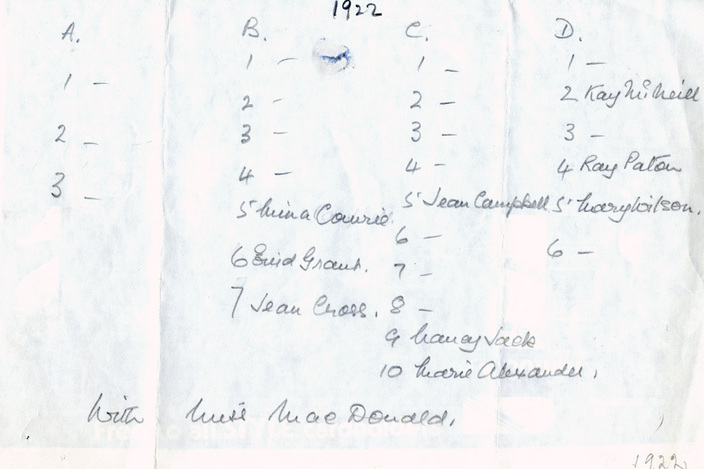 1922
A. B. C. D.
1 - 1 - 1 - 1 -
2 - 2 - 2 - 2 Kay McNeill
3 - 3 - 3 - 3 -
4 - 4 - 4 Ray Paton
5 Mina Cowrie. 5 Jean Campbell 5 Mary Wilson.
6 Enid Grant. 6 - 6 -
7 Jean Cross. 7 -
8 -
9 Nancy Jack
10 Marie Alexander.
With Miss MacDonald.
1922